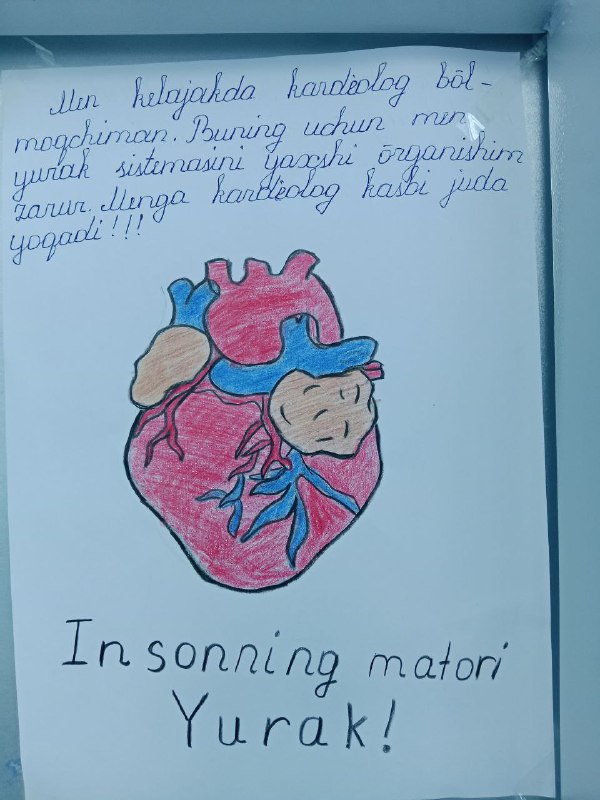 Men kelajakda kardiolog bōl-
moqchiman. Buning uchun men
yurak sistemasini yaxshi ōrganishim
zarur. Menga kardiolog kasbi juda
yoqadi!!!
Insonning matori
Yurak!